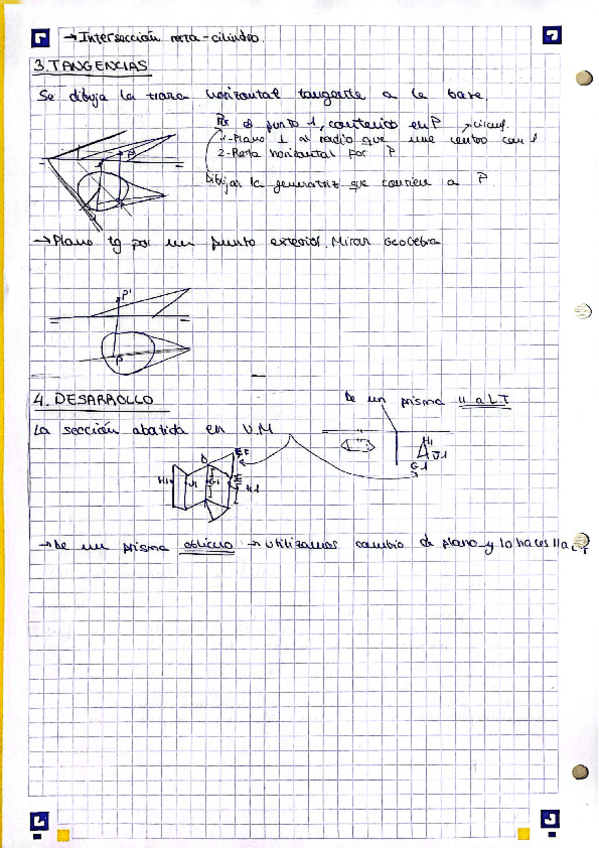 →Intersección recta-cilindro.
3. TANGENCIAS
Se dibuja la traza horizontal tangente a la base.
Por el punto 1, contenido en P
1-Plano ⊥ al radio que une centro con P
2-Recta horizontal por P
Dibujar la generatriz que contiene a P
→Plano tg por un punto exterior. Mirar GeoGebra
P'
P
4. DESARROLLO
De un prisma // a LT
La sección abatida en V.M
H1
J1
G1
H1 J1 G1
→De un prisma oblicuo → utilizamos cambio de plano y lo haces // a LT